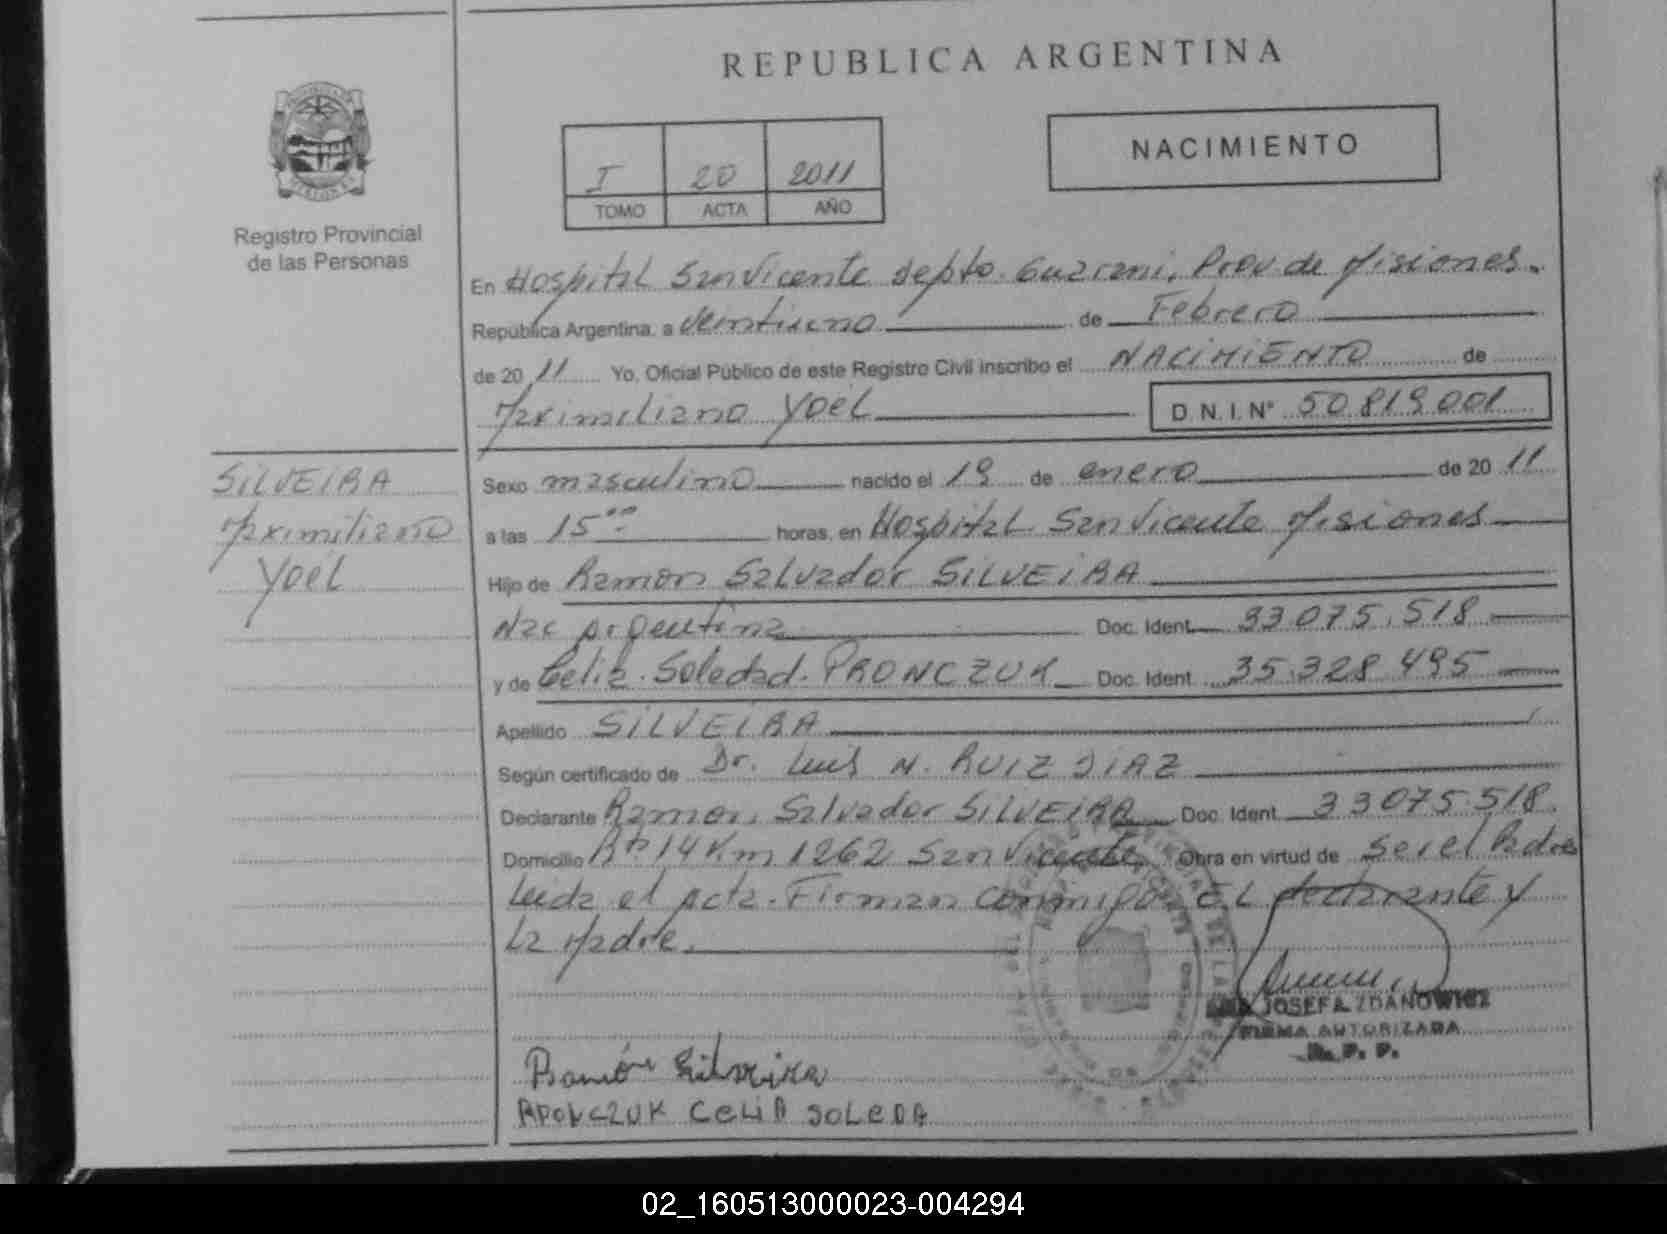 REPUBLICA ARGENTINA
NACIMIENTO
I 20 2011
TOMO ACTA AÑO
Registro Provincial
de las Personas
En Hospital San Vicente depto. Guarani, Prov. de Misiones.
República Argentina, a veintiuno de Febrero
de 20 11 Yo, Oficial Público de este Registro Civil inscribo el NACIMIENTO de
Maximiliano Yoel D.N.I. Nº 50.819.001
SILVEIRA
Maximiliano
Yoel
Sexo masculino nacido el 19 de enero de 20 11
a las 15 horas, en Hospital San Vicente Misiones
Hijo de Ramon Salvador SILVEIRA
Nac Argentina Doc. Ident. 33.075.518
y de Celia Soledad PRONCZUK Doc. Ident. 35.328.495
Apellido SILVEIRA
Según certificado de Dr. Luis N. RUIZ DIAZ
Declarante Ramon Salvador SILVEIRA Doc. Ident. 33.075.518
Domicilio Rta 14 Km 1262 San Vicente Obra en virtud de ser el Padre
Leida el Acta. Firman conmigo EL declarante y
La Madre.
JOSEFA ZDANOWICZ
FIRMA AUTORIZADA
R. P. P.
Ramón Silveira
APONCZUK CELIA SOLEDA
02_160513000023-004294